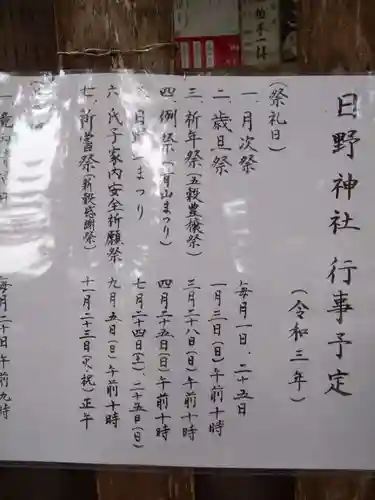 日野神社 行事予定
(令和三年)
(祭礼日)
一、月次祭 毎月一日、二十五日
二、歳旦祭 一月三日(日)午前十時
三、祈年祭(五穀豊穣祭) 三月二十八日(日)午前十時
四、例祭(春山まつり) 四月二十五日(日)午前十時
まつり 七月二十四日(土)、二十五日(日)
六、氏子家内安全祈願祭 九月五日(日)午前十時
七、新嘗祭(新穀感謝祭) 十一月二十三日(火、祝)正午
毎月二十日午前九時